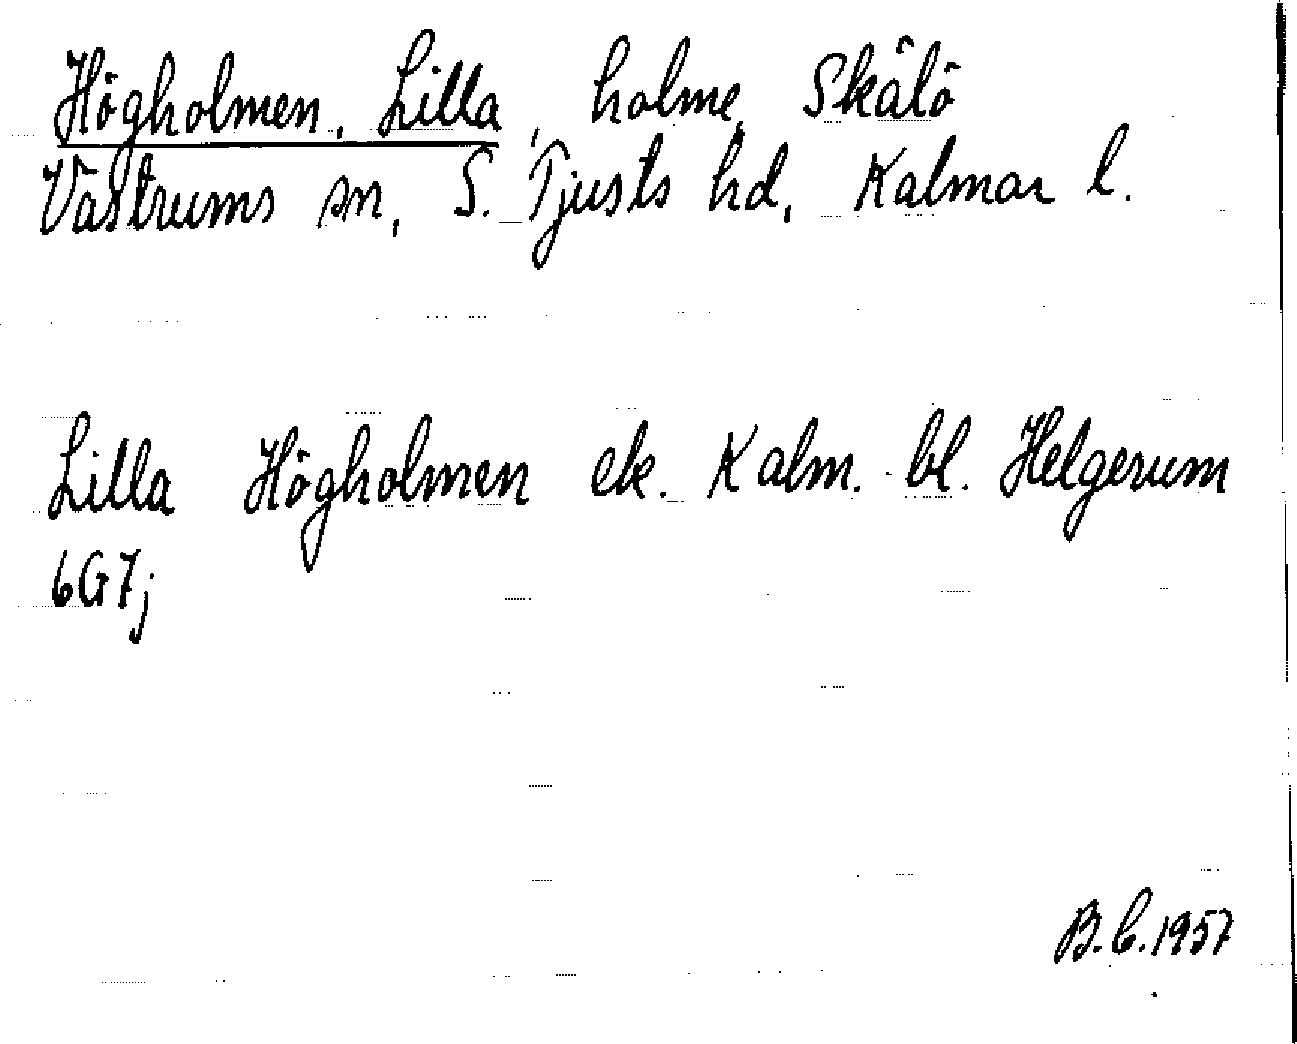 Högholmen, Lilla, holme, Skälö
Västrums sn, S. Tjusts hd, Kalmar l.
Lilla Högholmen ek. Kalm. bl. Helgerum
6G7j
B.C.1957